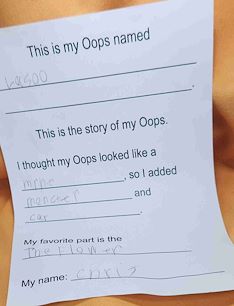 This is my Oops named
This is the story of my Oops.
I thought my Oops looked like a
, so I added
and
car.
My favorite part is the
The Flower
My name: Chris